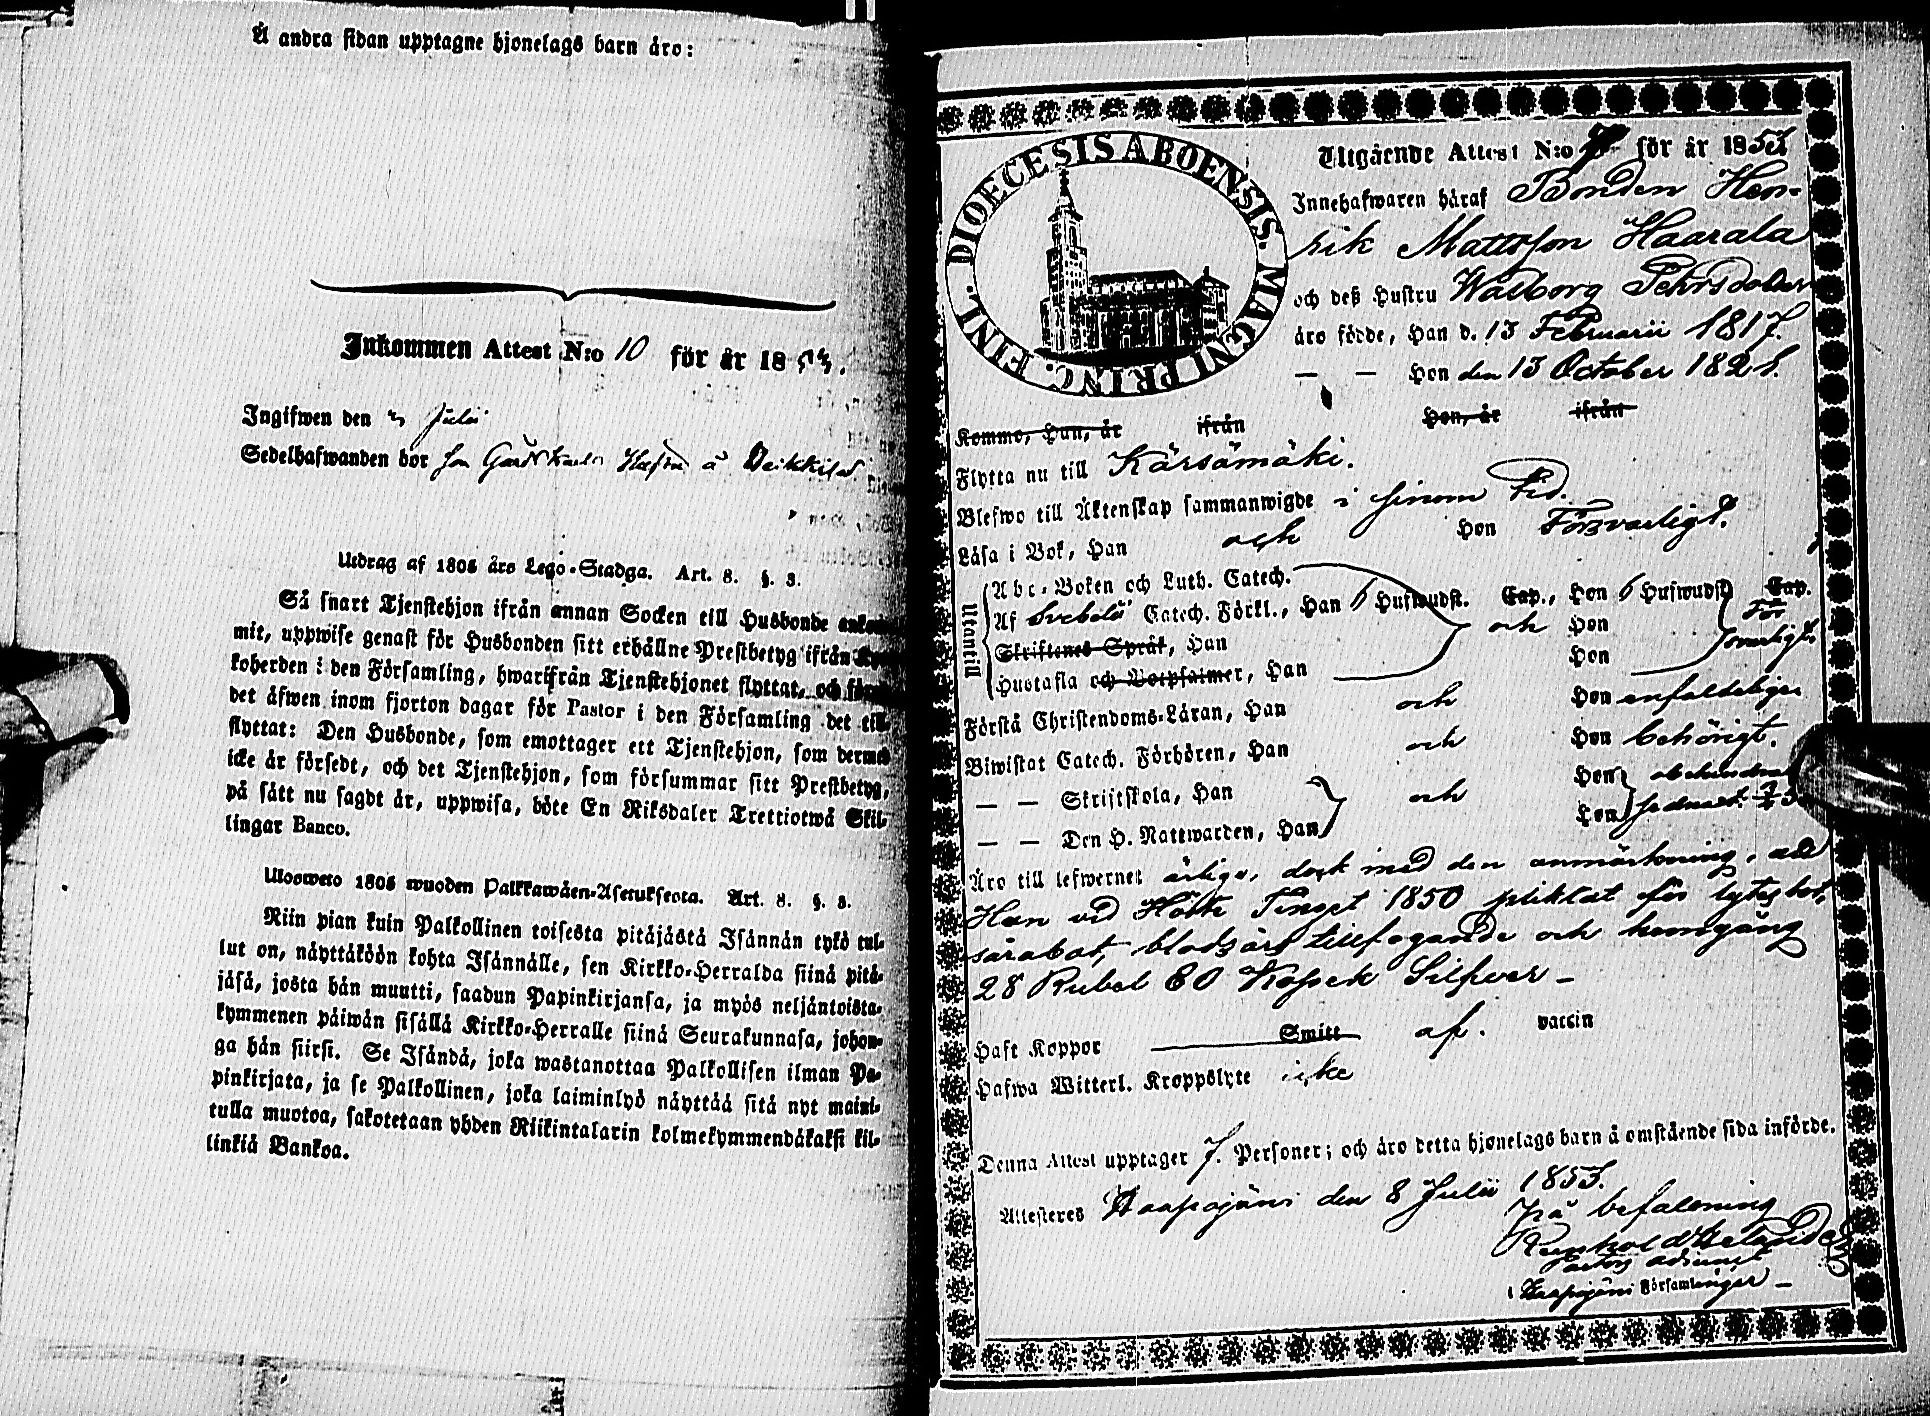 Å andra sidan upptagne hjonelags barn äro:
Inkommen Attest N:o 10 för år 1853.
Ingifwen den Julii
Sedelhafwanden bor
Utdrag af 1805 års Lego-Stadga. Art. 8. §. 3.
Så snart Tjenstehjon ifrån annan Socken till Husbonde
mit, uppwise genast för Husbonden sitt erhållne Prestbetyg ifrån
koherden i den Församling, hwarifrån Tjenstehjonet flyttat, och
det äfwen inom fjorton dagar för Pastor i den Församling det till
flyttat: Den Husbonde, som emottager ett Tjenstehjon, som dermed
icke är försedt, och det Tjenstehjon, som försummar sitt Prestbetyg,
på sätt nu sagdt är, uppwisa, böte En Riksdaler Trettiotwå Skil-
lingar Banco.
Ulosweto 1805 wuoden Palkkawäen-Asetuksesta. Art. 8. §. 3.
Niin pian kuin Palkollinen toisesta pitäjästä Isännän tykö tul-
lut on, näyttäköön kohta Isännälle, sen Kirkko-Herralda siinä pitä-
jäsä, josta hän muutti, saadun Papinkirjansa, ja myös neljäntoista-
kymmenen päiwän sisällä Kirkko-Herralle siinä Seurakunnasa, johon-
ga hän siirsi. Se Isändä, joka wastanottaa Palkollisen ilman Pa-
pinkirjata, ja se Palkollinen, joka laiminlyö näyttää sitä nyt maini-
tulla muotoa, sakotetaan yhden Riikintalarin kolmekymmendäkaksi kil-
linkiä Bankoa.
DIOECESIS ABOENSIS. MAGNI PRINC. FINL.
Utgående Attest N:o för år 1853
Innehafwaren häraf Bonden Hen-
rik Mattsson Haarala
och deß Hustru Walborg Pehrsdotter
äro födde, Han d. 13 Februarii 1817.
— — Hon den 13 October 1821.
Kommo, Han, år ifrån Hon, år ifrån
Flytta nu till Kärsämäki.
Blefwo till Äktenskap sammanwigde i sinom tid.
Läsa i Bok, Han och Hon Försvarligt.
Utantill
Abc-Boken och Luth. Catech.
Af Svebelii Catech. Förkl., Han 6 Hufwudst. Cap., Hon 6 Hufwudst. Cap.
Skriftenes Språk, Han och Hon För
Hustafla och Botpsalmer, Han Hon svarligt
Förstå Christendoms-Läran, Han och Hon enfaldeligen
Biwistat Catech. Förhören, Han och Hon behörigt.
— — Skriftskola, Han och Hon obehindrad
— — Den H. Nattwarden, Han Hon sednast
Äro till lefwernet ärlige, dock med den anmärkning, att
Han vid Höste Tinget 1850 pliktat för lytesbot,
sårabot, blodsårs tillfogande och hemgång
28 Rubel 80 Kopek Silfver –
Haft Koppor Smitt af. vaccin
Hafwa Witterl. Kroppslyte icke
Denna Attest upptager 7. Personer; och äro detta hjonelags barn å omstående sida införde.
Attesteras Haapajärvi den 8 Julii 1853.
På befallning
Pastors adjunct
i Haapajärvi Församlingar –